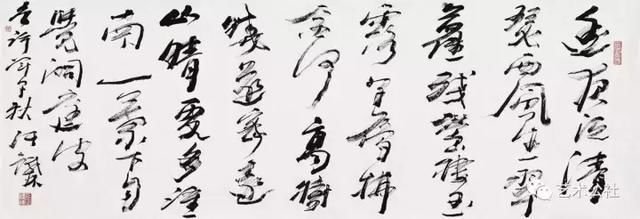 遥夜泛清
瑟西风生翠
萝残萤栖玉
露早雁拂
金河高树
晓还密远
山晴更多淮
南一叶下自
觉洞庭波
许浑早秋
艺术公社